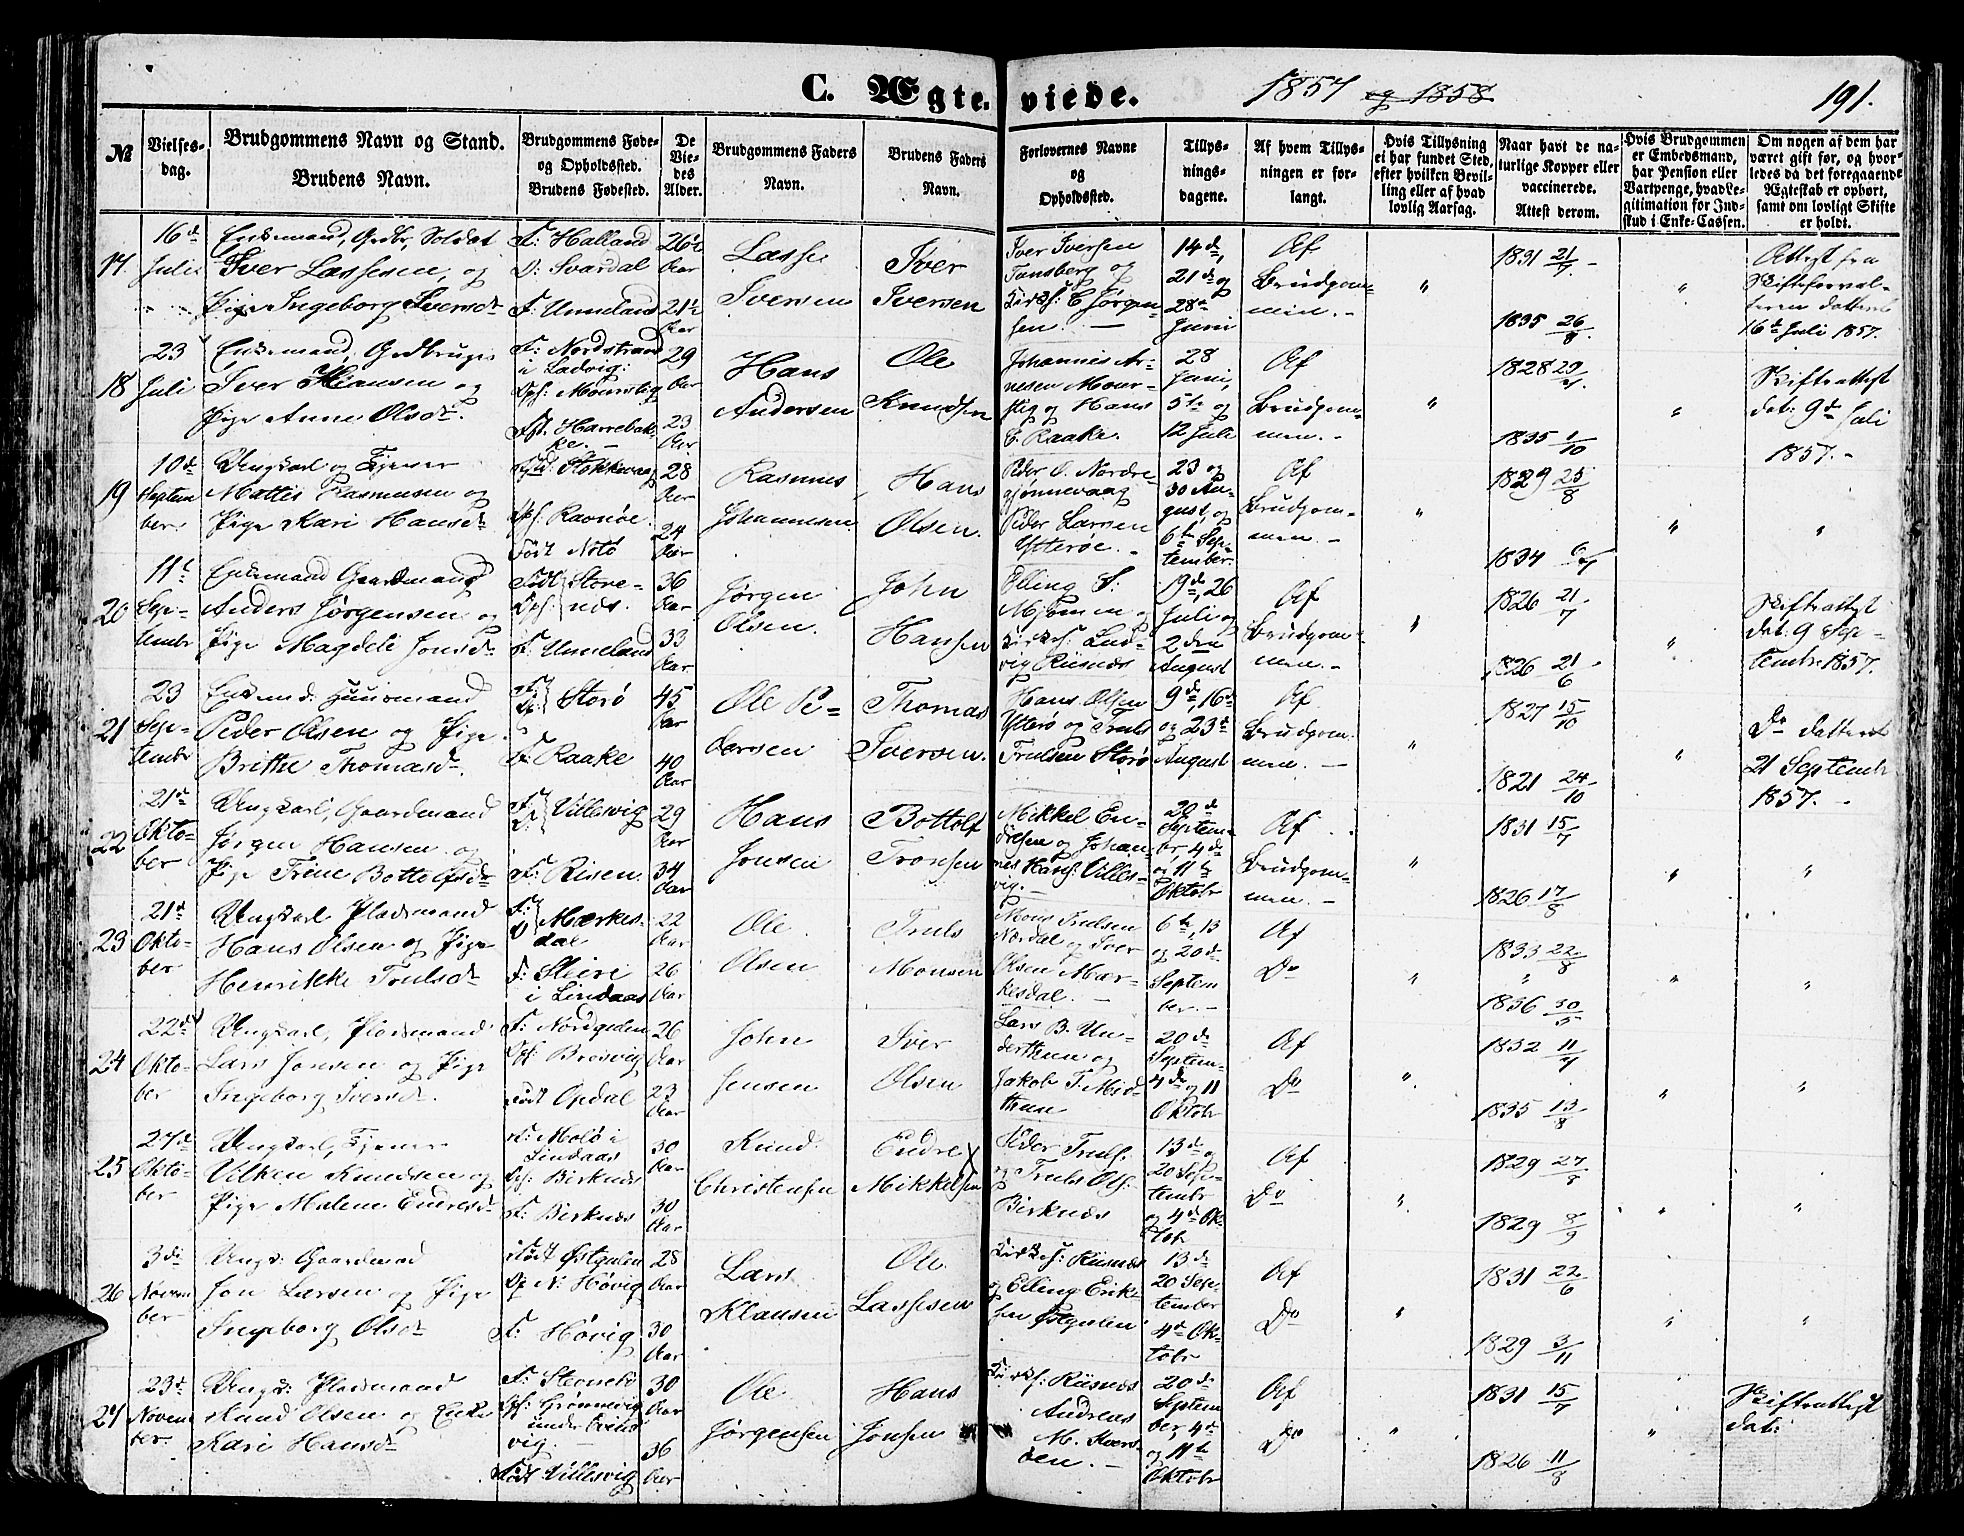 C. Ægteviede. 1857 og 1858 191.
№
Vielses-
dag.
Brudgommens Navn og Stand.
Brudens Navn.
Brudgommens Føde-
og Opholdssted.
Brudens Fødested.
De
Vie-
des
Alder.
Brudgommens Faders
Navn.
Brudens Faders
Navn.
Forlovernes Navne
og
Opholdssted.
Tillys-
nings-
dagene.
Af hvem Tillys-
ningen er for-
langt.
Hvis Tillysning
ei har fundet Sted,
efter hvilken Bevil-
ling eller af hvad
lovlig Aarsag.
Naar havt de na-
turlige Kopper eller
vaccinerede.
Attest derom.
Hvis Brudgommen
er Embedsmand,
har Pension eller
Vartpenge, hvad Le-
gitimation for Ind-
skud i Enke-Cassen.
Om nogen af dem har
været gift før, og hvor-
ledes da det foregaaende
Ægteskab er ophørt,
samt om lovligt Skifte
er holdt.
17
16de
Julii
Enkemand, Grdbr, Soldat
Iver Lassesen og
Pige Ingeborg Iversdr
F: Halland
O: Svardal
F: Unneland
26½
Aar
21½
Aar
Lasse
Iversen
Iver
Iversen
Iver Iversen
Tansberg og
Kirks: C Jørgen-
sen. —
14de,
21de og
28de
Juni
Af
Brudgom-
men. -
"
1831 21/7 -
1835 26/8
"
Attest fra
Skifteforval-
teren datteret
16de Juli 1857.
18
23
Juli
Enkemand, Grdbruger
Iver Hansen og
Pige Anne Olsdr.
F: Nordstrand
i Ladvig:
Oph: Mourstig
29
Aar
23
Aar
Hans
Andersen
Ole
Knudsen
Johannes Ar-
nesen Mour-
stig og Hans
C. Raake.
28
Juni,
5te og
12 Juli
Af
Brudgom-
men. -
"
1828
1835 1/10
"
Skifteattest
dat: 9de Juli
1857. -
19
10de
Septem
ber.
Ungkarl og Tjener
Mattis Rasmusen og
Pige Kari Hansdr
Fød: Stokkevaag
Oph. Ravnøe.
Født Notø
28
Aar
24
Aar
Rasmus
Johannesen
Hans
Olsen.
Peder O. Nordre
gjønnevaag
Peder Larsen
Ytterøe. -
23 og
30 Au-
gust, og
6te Sep-
tember.
Af
Brudgom-
men. -
"
1829 25/8
1834
"
"
20
11te
Sep-
tembr
Enkemand Gaardmand
Anders Jørgensen og
Pige Magdeli Jonsdr
Født Store-
Oph: næs.
F: Unneland
36
Aar
33
Aar
Jørgen
Olsen.
John
Hansen
Elling S:
Mjømen og
Kirks: Lud-
vig Riisnæs
19de, 26
Juli og
2den
August
Af
Brudgom-
men. -
"
1826 21/7
1826 21/6
"
Skifteattest
dat: 9 Sep-
tembr 1857.
21
23
Sep-
tembr
Enkemd: Huusmand
Peder Olsen og Pige
Brithe Thomasdr.
F: Storø
F: Raake
45
Aar
40
Aar
Ole Pe-
dersen
Thomas
Iversen.
Hans Olsen
Ytterø og Truls
Trulsen Storø
9de, 16de
og 23de
August
Af
Brudgom-
men. —
"
1827 15/10
1821 24/10
"
Do datteret
21 Septembr
1857. -
22
21de
Okto-
ber
Ungkarl, Gaardmand
Jørgen Hansen og
Pige Trine Bottolfsdr
F: Villesvig
F: Risen.
29
Aar
34
Aar
Hans
Jonsen
Bottolf
Tronsen
Mikkel En-
dresen og Johan-
nes Hans: Villes-
vig. -
20de
Septem-
br, 4de
og 11te
Oktobr
Af
Brudgom-
men. -
"
1831 15/7
1826 17/8
"
"
23
21de
Okto-
ber
Ungkarl Pladsmand
Hans Olsen og Pige
Henrikke Trulsdr
F: Mærkes-
O dal
F: Steire
i Lindaas
22
Aar
26
Aar
Ole
Olsen
Truls
Monsen
Mons Trulsen
Nordal og Iver
Olsen Mær-
kesdal. -
6te, 13
og 20de
Septem
ber. -
Af
Do
"
1833 22/8
"
1836 30/5
"
"
24
22de
Okto-
ber
Ungkarl, Pladsmand
Lars Jonsen og Pige
Ingeborg Iversdr.
F: Nordgulen
Oph: Brosvig
Født Opdal
26
Aar
23
Aar
John
Jensen
Iver
Olsen
Lars B. Un-
derthun og
Jakob T. Mid-
thun
20de
Septem-
4de og 11
Oktobr
Af
Do
"
1832
1835 13/8
"
"
25
27de
Okto-
ber
Ungkarl, Tjener
Vilken Knudsen og
Pige Malene Endresdr
F: Molø i
Lindaas
Oph: Birknæs
F: Birknæs
30
Aar
30
Aar
Knud
Christensen
Endre
Mikkelsen
Peder Truls.
og Truls Ols.
Birknæs
13de og
20 Sep-
tembr
og 4de Ok-
tobr
Af
Do
"
1829 27/8
1829 8/9
"
"
26
3die
Novem
ber
Ungk: Gaardmand
Jon Larsen og Pige
Ingeborg Olsdr
Født Østgulen
Op N: Høvig
F: Høvig
28
Aar
30
Aar
Lars
Klausen
Ole
Lassesen
Kirks: Riisnæs
og Elling Erik-
sen Østgulen
13de
20 Sep-
tember
4de Ok-
tobr
Af
Do
"
1831 22/6
1829 3/11
"
"
27
23de
Novem
ber.
Ungk: Pladsmand
Knud Olsen og Enke
Kari Hansdr
Oph: Grønnevig
under
vig. —
Født Villesvig
30
Aar
36
Aar
Ole
Jørgensen
Hans
Jonsen
Kirks: Riisnæs
Andreas
M.
20de
Septem
ber, 4de
og 11te
Oktobr
Af
Do
"
1831 15/7
1826 11/8
"
Skifteattest
dat: